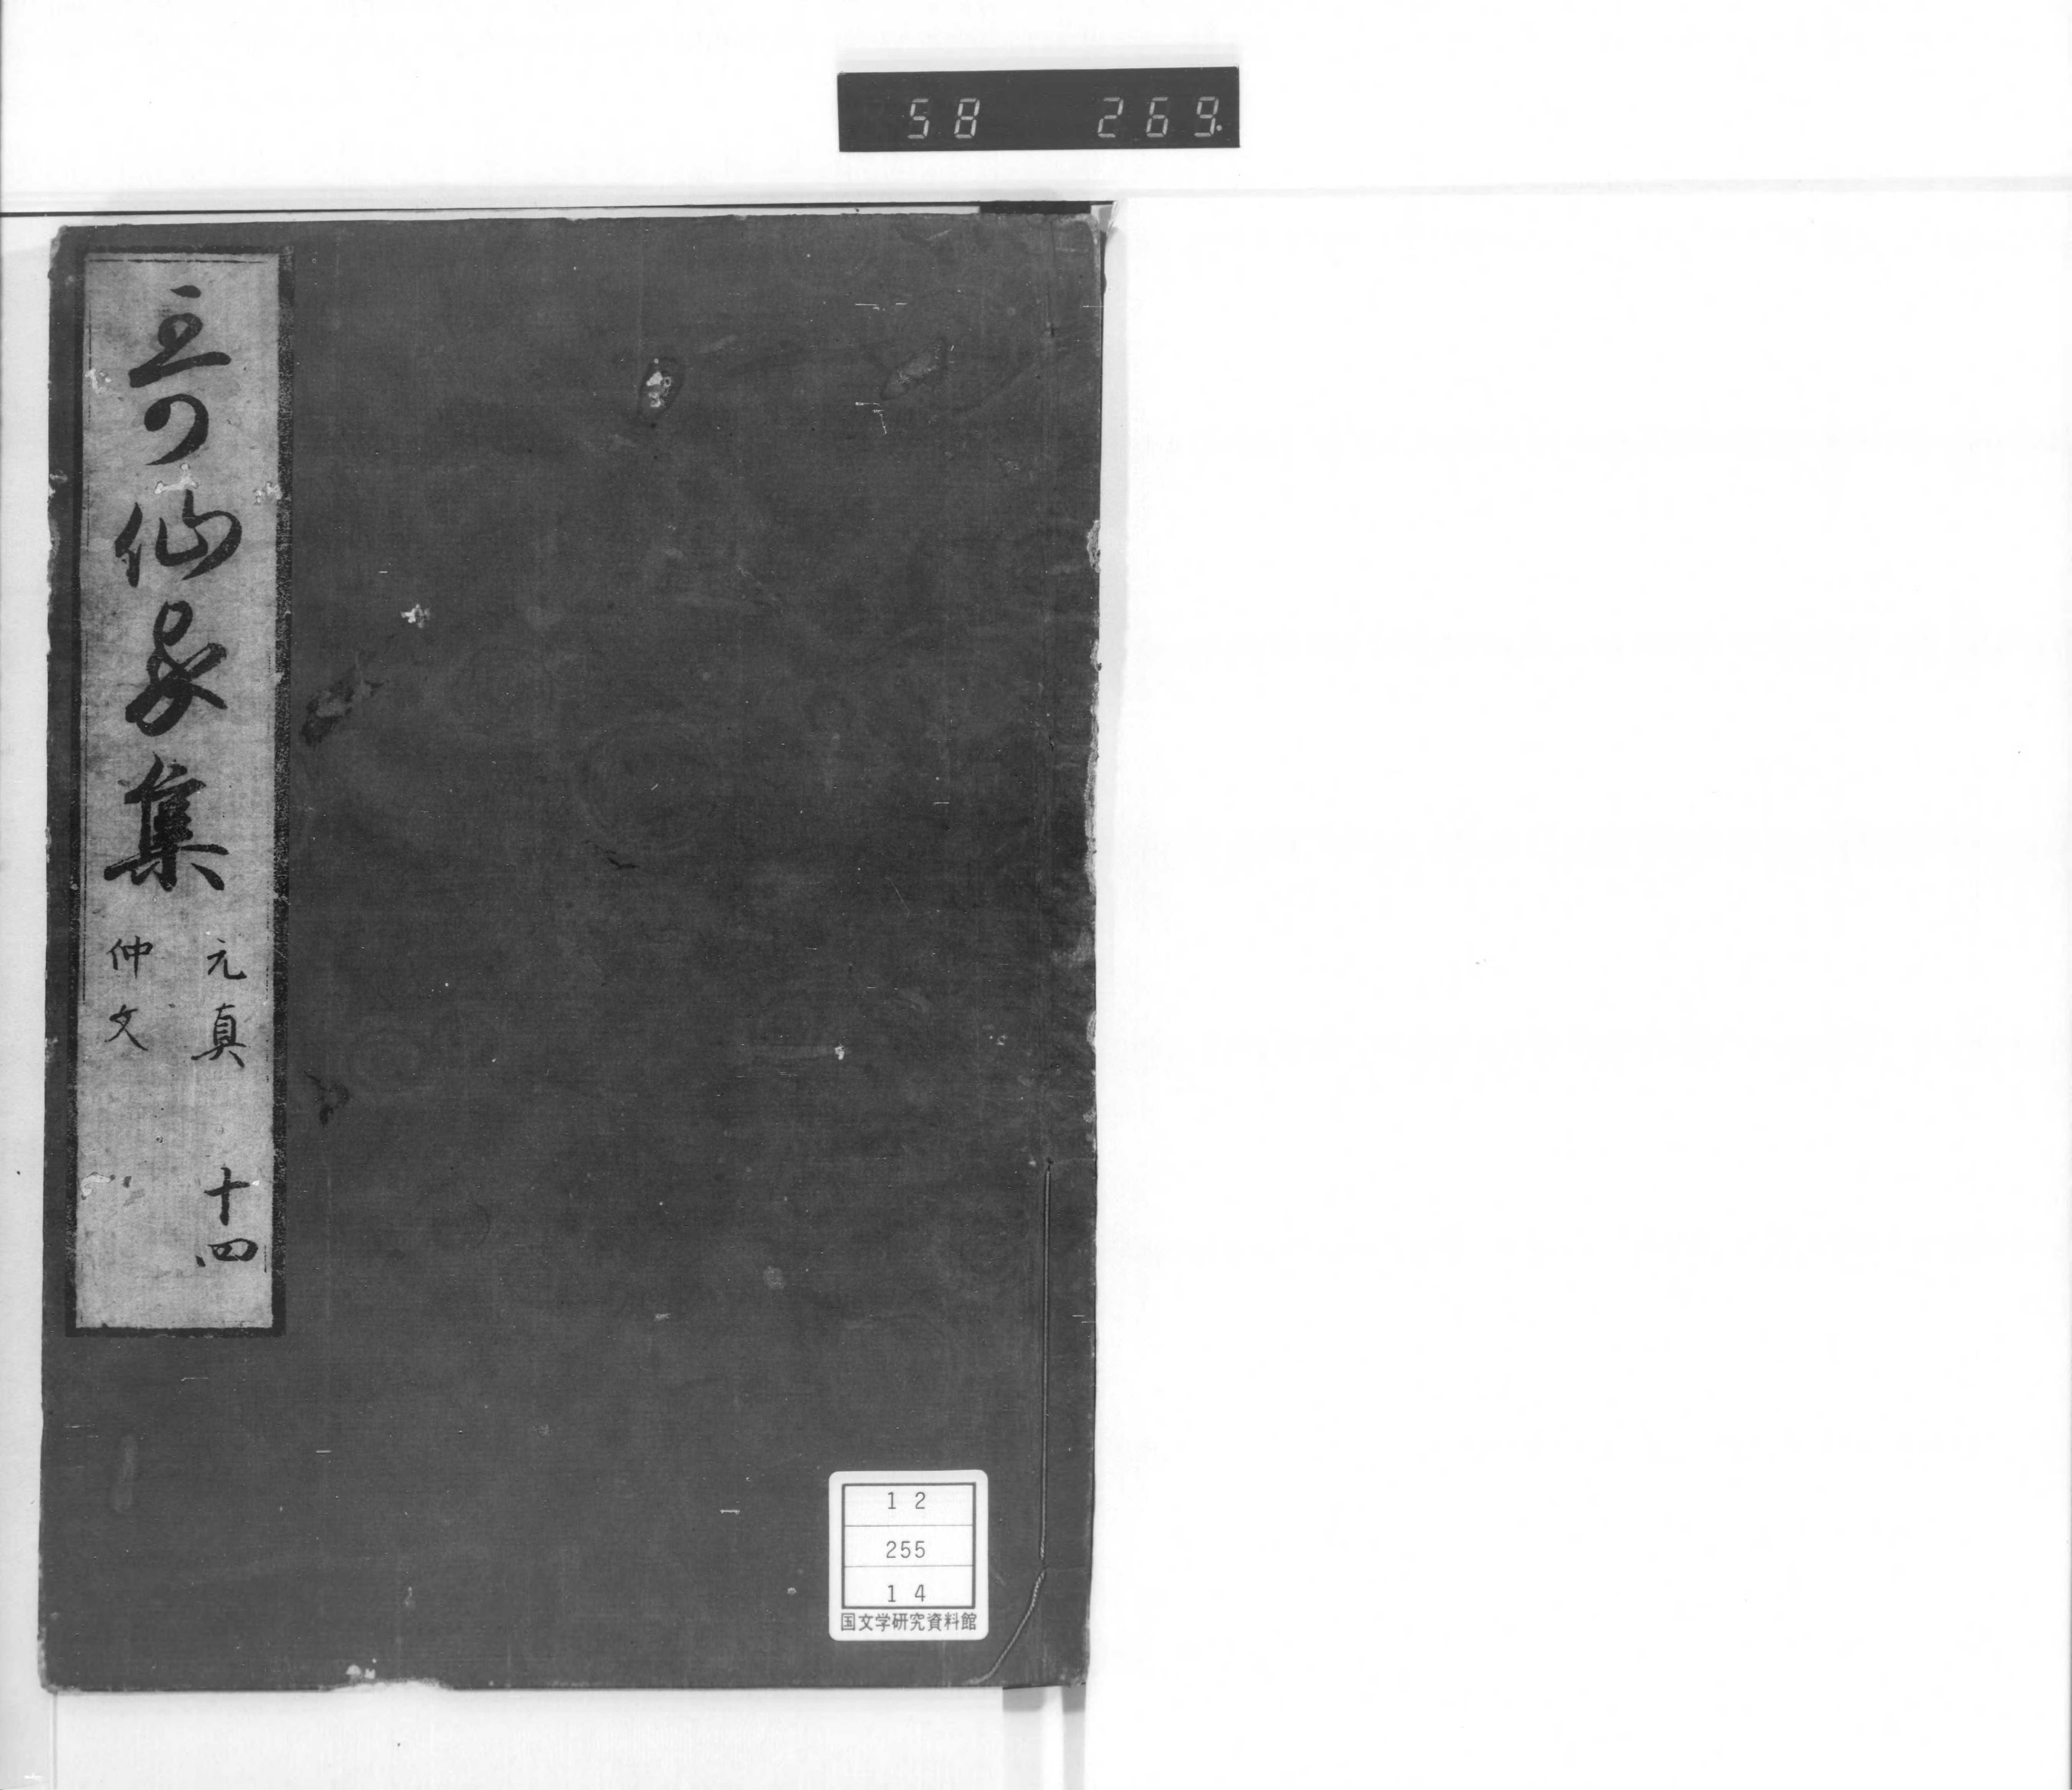 58 269.
哥仙家集
元真
仲文
十四
12
255
14
国文学研究資料館